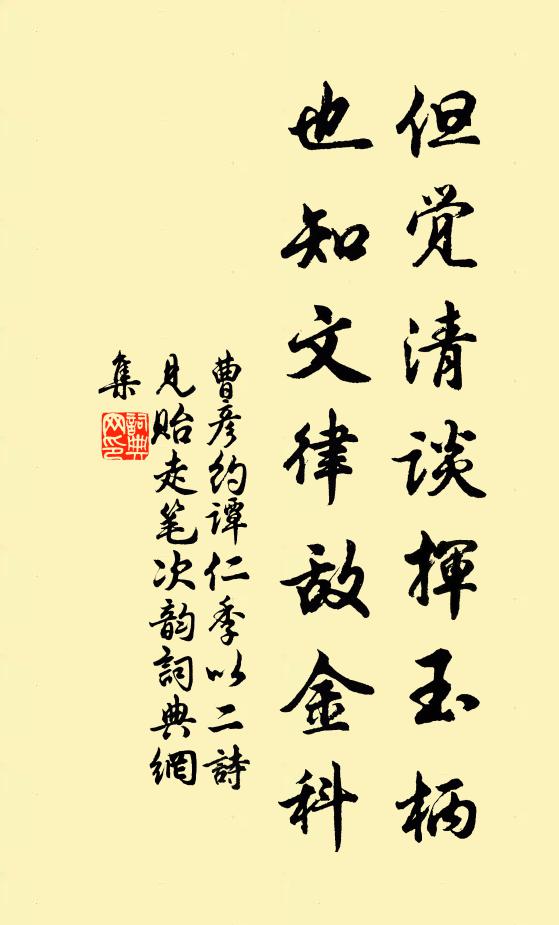 但觉清谈揮玉柄
也知文律敌金科
曹彦约谭仁季以二詩
見贻走笔次韵詞典網
集
詞典網印